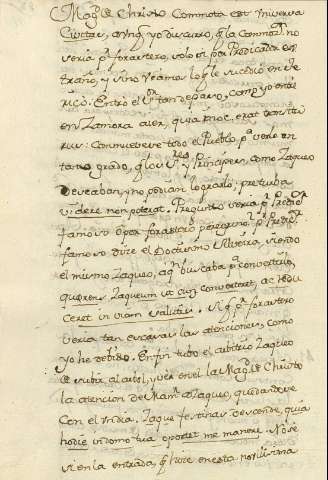 Mag.d de Christo Commota est Universa
Civitas, aunq. yo discurro, q. la Commoz.n no
seria p.r forastero, solo si por Predicador es
traño, y sino Veamos lo q. le sucedió en Je
ricó. Entró el S.or tan de paso, como yo entré
en Zamora aier, quia hac erat transitu
rus: Conmuevese todo el Pueblo p.a verlo en
tanto grado, q. los y Principes, como Zaqueo
Deseaban, y no podian lograrlo, pre turba
videre non poterat. Pregunto seria p.r Predic.or
famoso o por forastero peregrino? p.r Predic.or
famoso dice el Doctissimo Silveira, viendo
el mismo Zaqueo, a q.n buscaba p.a convertirlo,
querens Zaqueum ut eum converteret, ac redu
ceret in viam salutis. Si q. p.r forastero
seria tan escasas las atenciones, como
yo he debido. En fin tubo el arbitrio Zaqueo
de subir al arbol, y ver en el la Mag.d de Christo
la atencion de llamar a Zaqueo, quedandose
Con el en dia. Zaquee festinas descende, quia
hodie in domo tua oportet me manere. No se
si en la entrada, q. hice en esta nobilissima